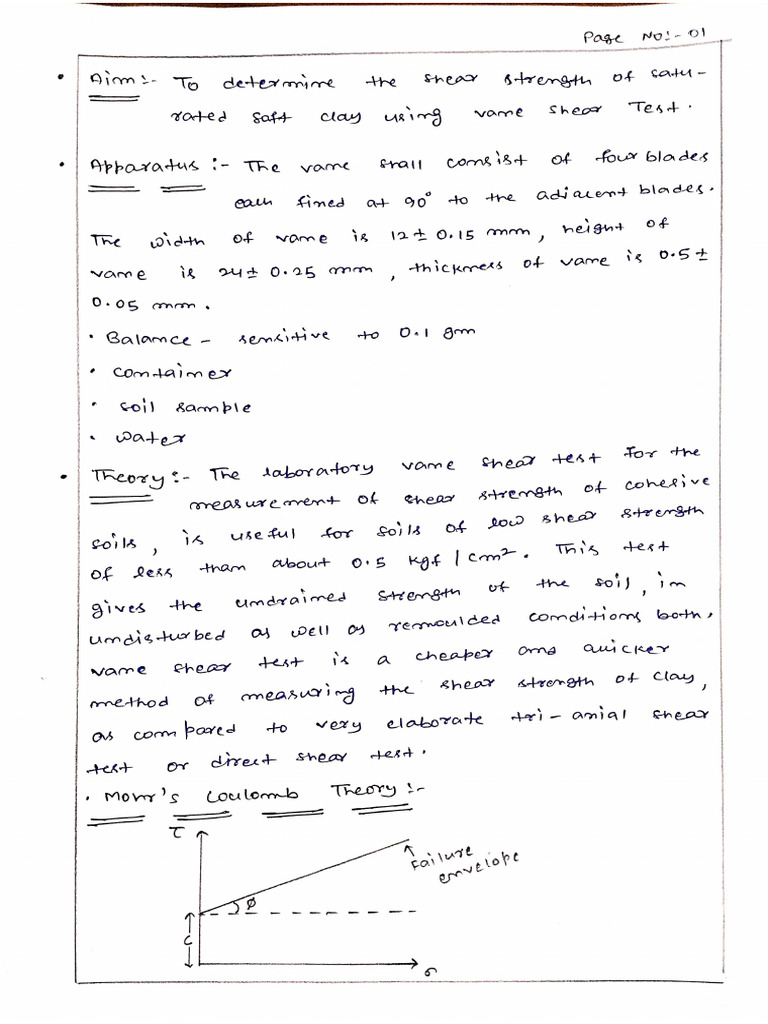 Page No:- 01
• Aim:- To determine the shear strength of satu-
rated soft clay using vane shear Test.
• Apparatus :- The vane shall consist of four blades
each fixed at 90° to the adjacent blades.
The width of vane is 12 ± 0.15 mm, height of
vane is 24 ± 0.25 mm, thickness of vane is 0.5 ±
0.05 mm.
• Balance - sensitive to 0.1 gm
• container
• soil sample
• water
• Theory :- The laboratory vane shear test for the
measurement of shear strength of cohesive
soils, is useful for soils of low shear strength
of less than about 0.5 kgf / cm². This test
gives the undrained strength of the soil, in
undisturbed as well as remoulded conditions both,
vane shear test is a cheaper and quicker
method of measuring the shear strength of clay,
as compared to very elaborate tri-axial shear
test or direct shear test.
• Mohr's Coulomb Theory :-
τ
Failure
envelope
ø
c
σ